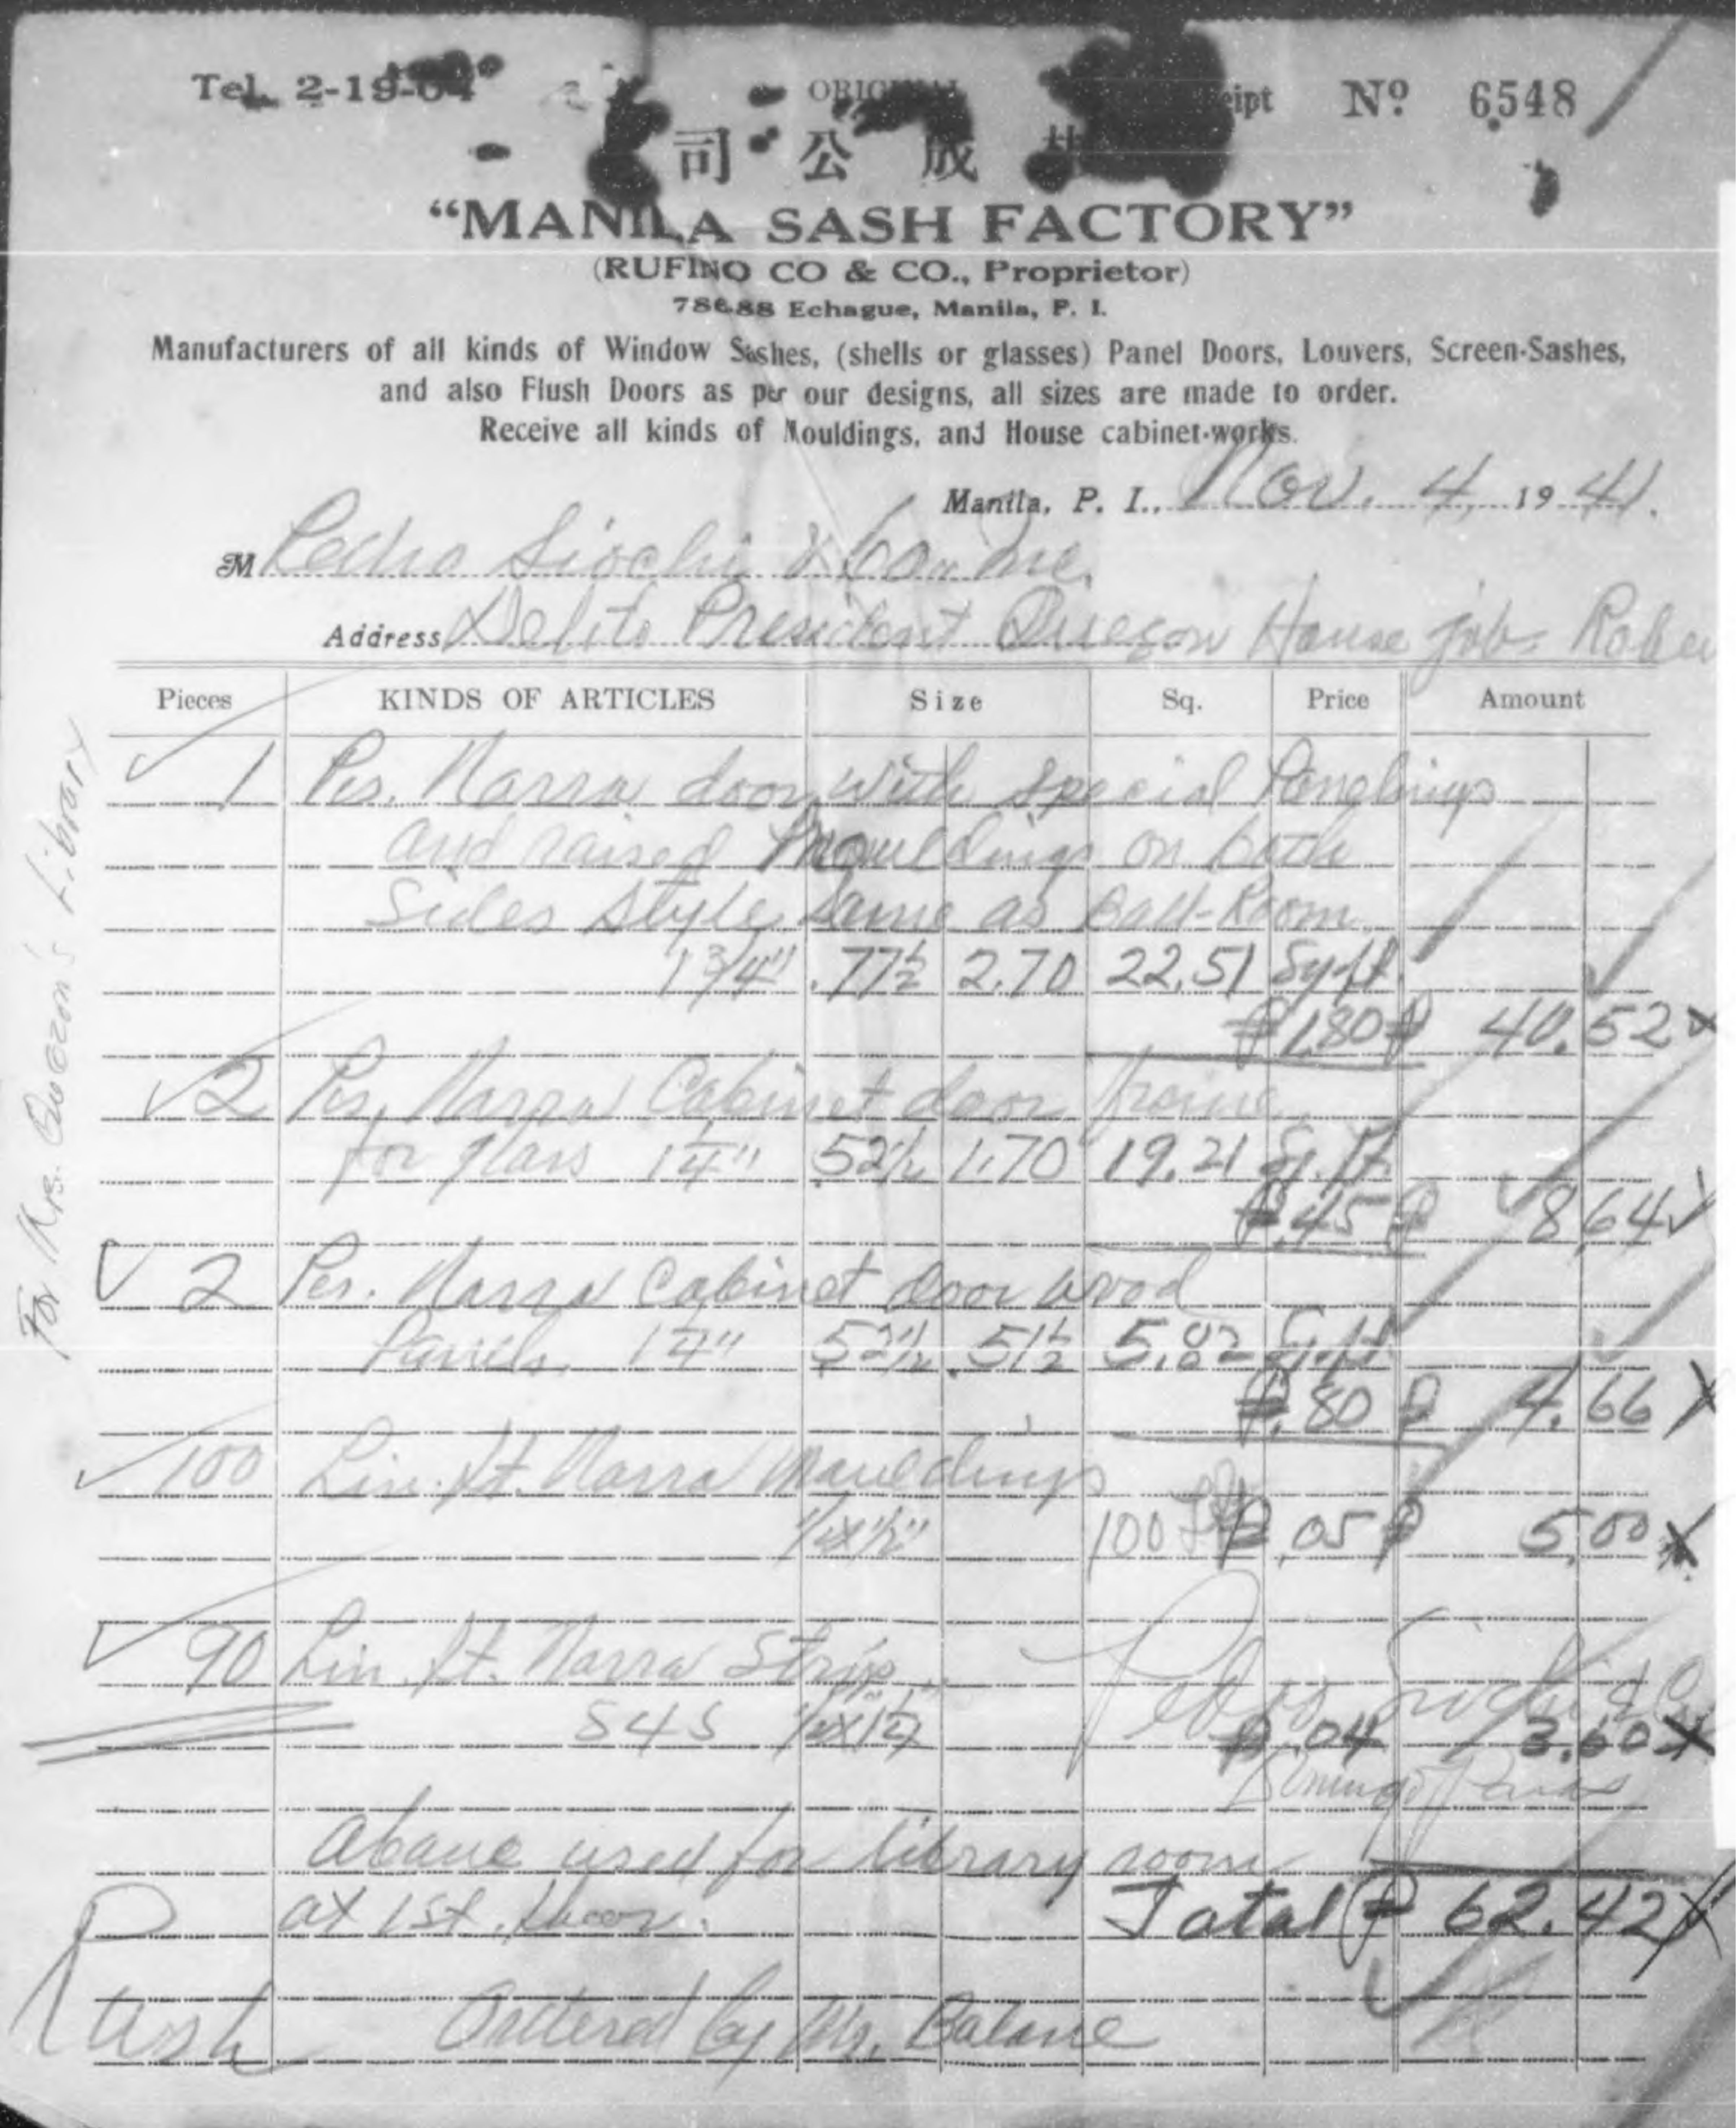 Tel. 2-19-04 ORIGINAL Receipt Nº 6548
司 公 成
“MANILA SASH FACTORY”
(RUFINO CO & CO., Proprietor)
786-88 Echague, Manila, P. I.
Manufacturers of all kinds of Window Sashes, (shells or glasses) Panel Doors, Louvers, Screen-Sashes,
and also Flush Doors as per our designs, all sizes are made to order.
Receive all kinds of Mouldings, and House cabinet-works.
Manila, P. I., Nov. 4, 1941.
M Pedro Siochi & Co. Inc.
Address President Quezon House job
Pieces KINDS OF ARTICLES Size Sq. Price Amount
1 Pcs. Narra door with special Panelings
and raised Mouldings on both
Sides style same as Ball-Room
1 3/4" .77½ 2.70 22.51 Sq.ft.
₱1.80 ₱ 40.52
2 Pcs. Narra Cabinet door frame
for glass 1¼" .52½ 1.70 19.21 Sq. ft.
₱.45 ₱ 8.64
2 Pcs. Narra Cabinet door wood
Panels 1¼" .52½ .51½ 5.82 Sq.ft
₱.80 ₱ 4.66
100 Lin. ft. Narra Mauldings
½x½" 100 ₱.05 ₱ 5.00
90 Lin. ft. Narra Strips
S4S ½x1½" ₱.04 3.60
Pedro Siochi & Co.
Domingo
Above used for library room
at 1st. floor. Total ₱ 62.42
Rush Ordered by Mr. Balane
For Mrs. Quezon's Library